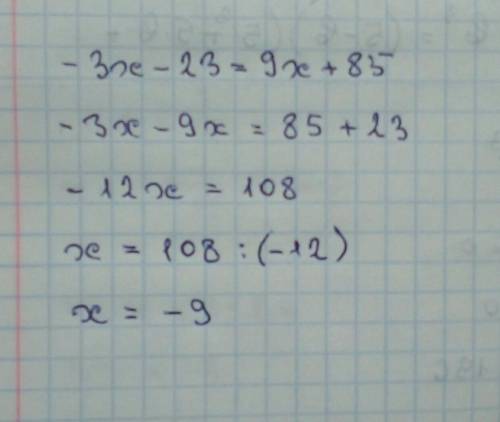 -3x - 23 = 9x + 85
-3x - 9x = 85 + 23
-12x = 108
x = 108 : (-12)
x = -9